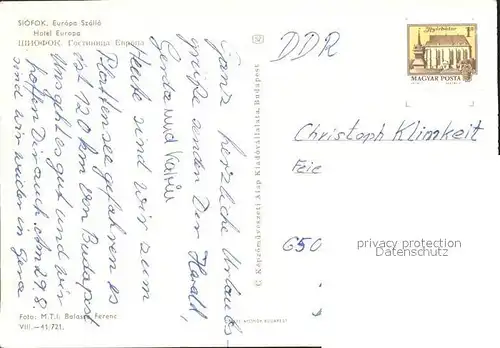 SIÓFOK. Európa Szálló
Hotel Europa
ШИОФОК. Гостиница Европа
Ganz herzliche Urlaubs
grüße senden Dir Harald,
Gena und Katrin
Heute sind wir zum
Plattensee gefahren es
ist 120 km von Budapest
Uns geht es gut und wir
hoffen Dir auch. Am 29.8.
sind wir wieder in Gera
Foto: M.T.I. Balassa Ferenc
VIII.—41/721.
C Képzőművészeti Alap Kiadóvállalata, Budapest
DDR
Nyírbátor
MAGYAR POSTA
Christoph Klimkeit
650
privacy protection
Datenschutz